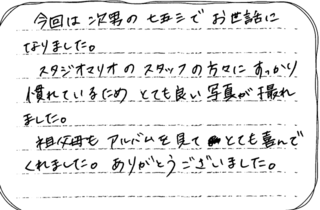 今回は次男の七五三でお世話に
なりました。
スタジオマリオのスタッフの方々にすっかり
慣れているためとても良い写真が撮れ
ました。
祖父母もアルバムを見てとても喜んで
くれました。ありがとうございました。